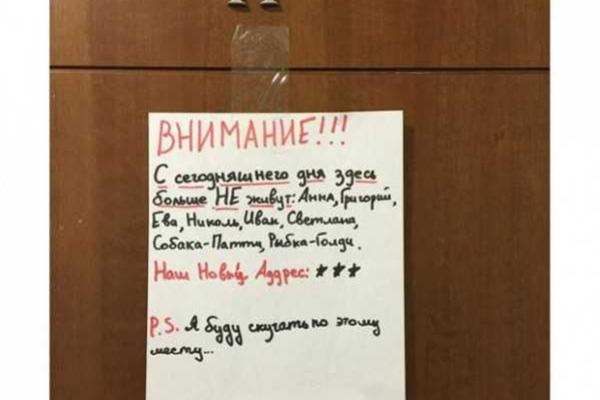 ВНИМАНИЕ!!!
С сегодняшнего дня здесь
больше НЕ живут: Анна, Григорий,
Ева, Николь, Иван, Светлана,
Собака-Патти, Рыбка-Голди.
Наш Новый Аддрес: ***
P.S. Я буду скучать по этому
месту...